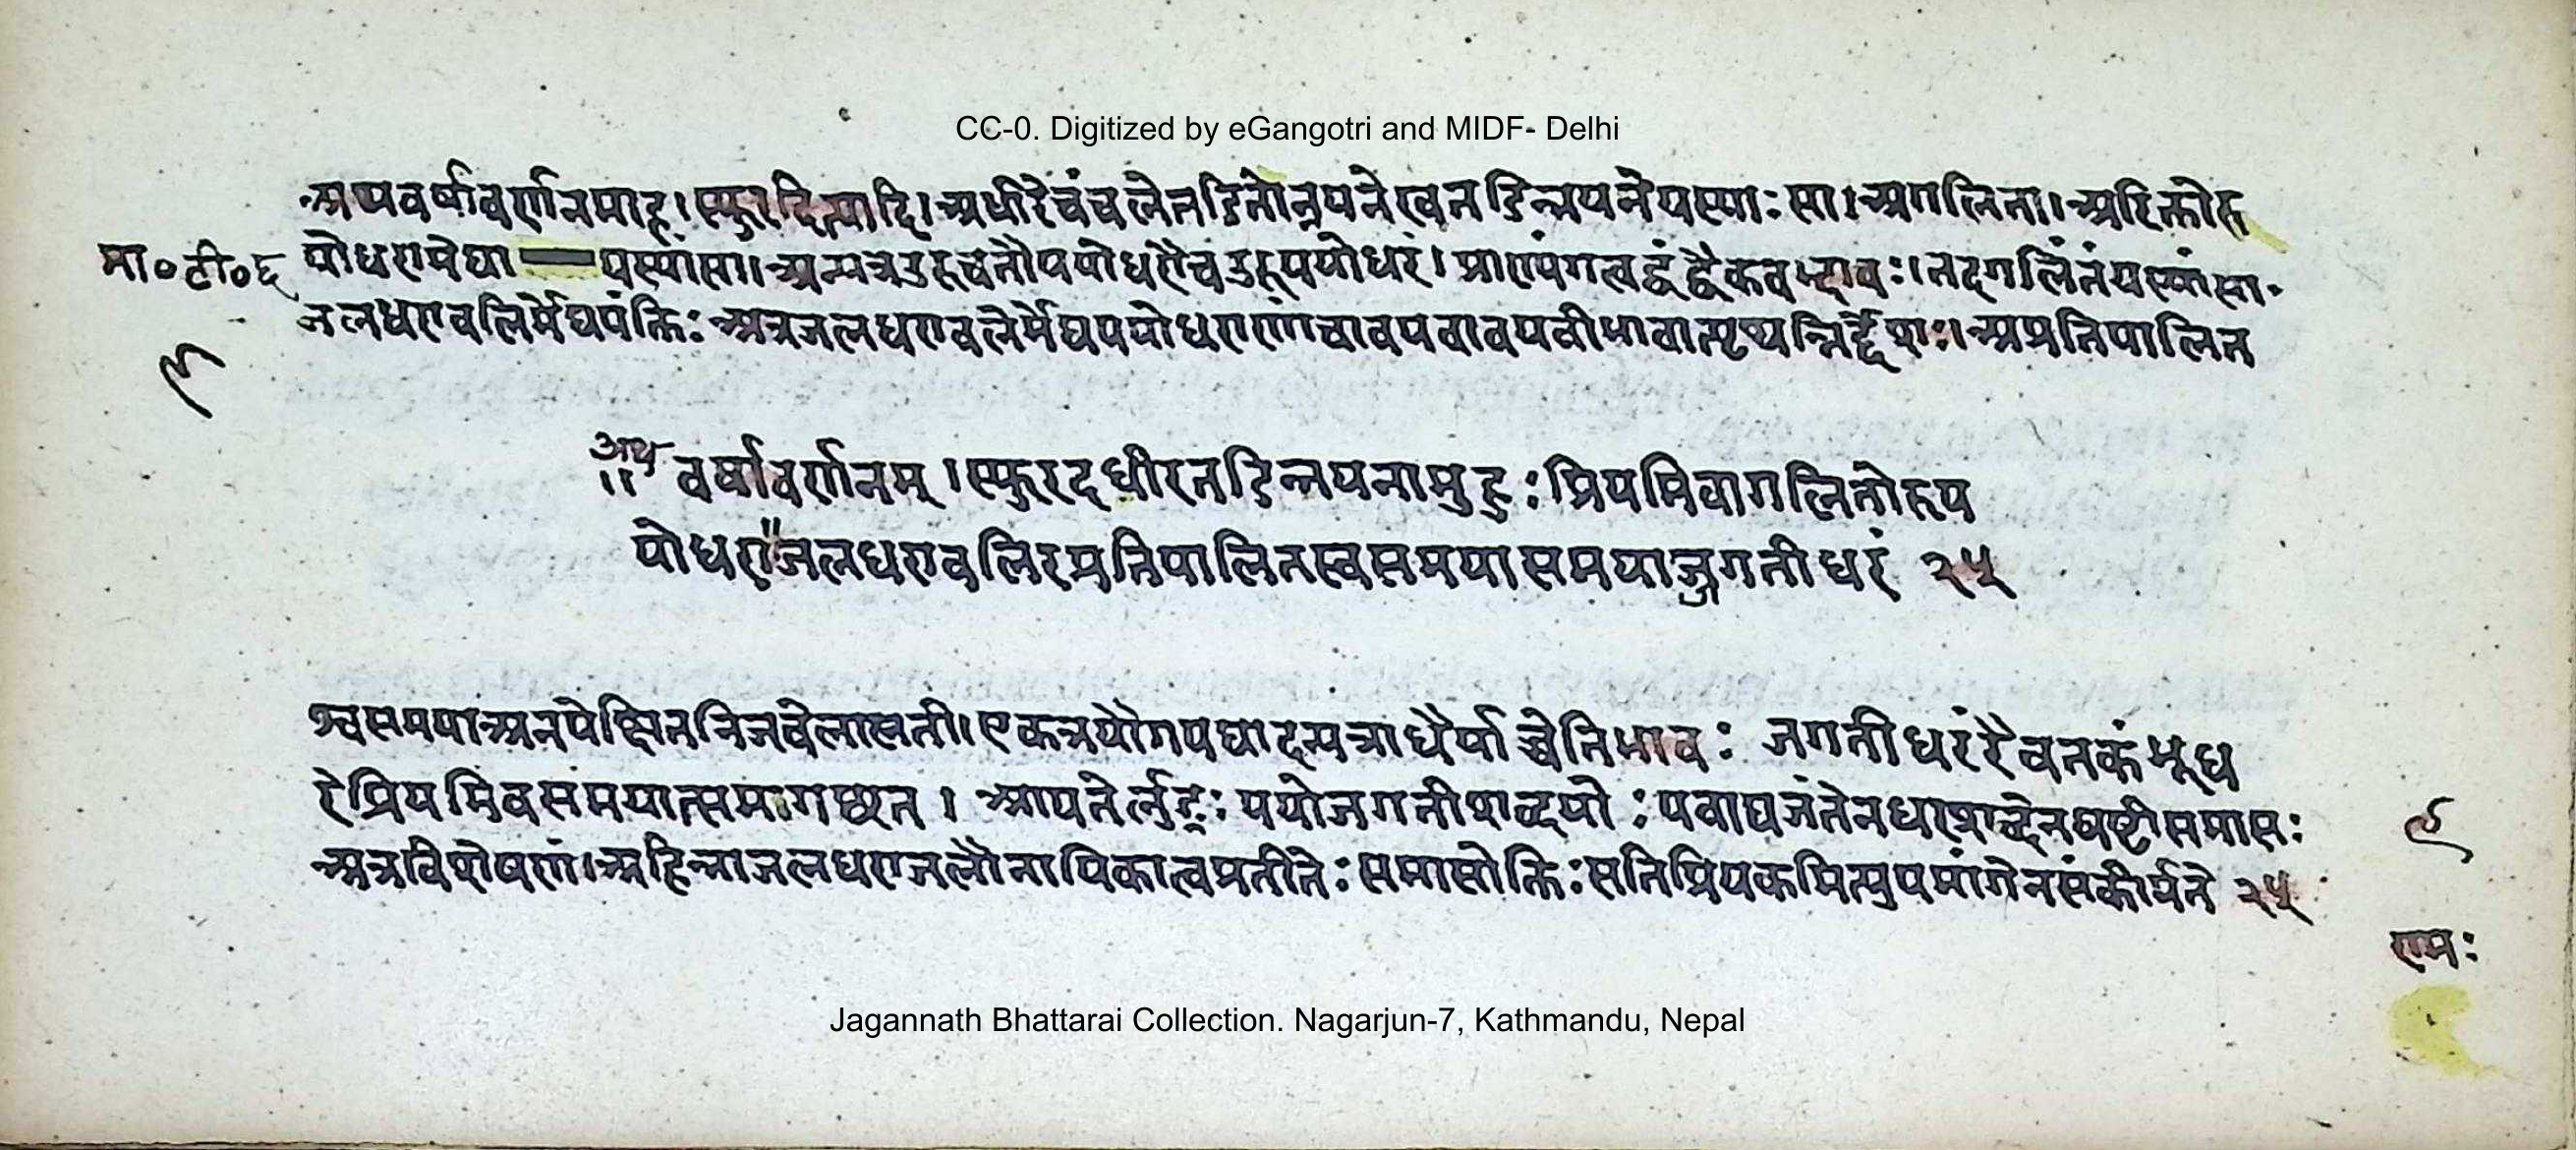 CC-0. Digitized by eGangotri and MIDF- Delhi
अथवर्षावर्णनमाह।स्फुरदित्यादि।अधीरेचंचलेतडितोनयनेइवतडिन्नयनेयस्याःसा।अगलिता।अरिक्तोरु
मा०टी०६ पयोधरामेघा यस्यांसा।अन्यत्रउरूचतौपयोधरौचउरूपयोधरं।प्राण्यंगत्वद्वंद्वैकवद्भावः।तदगलितंयस्यांसा
जलधरावलिर्मेघपंक्तिः अत्रजलधरावलेर्मेघपयोधराणांचावयवावयवीभावात्पृथन्निर्द्देशः।अप्रतिपालित
९
॥ अथ वर्षावर्णनम् ।स्फुरदधीरतडिन्नयनामुहुःप्रियमिवागलितोरुप
योधरा॥जलधरावलिरप्रतिपालितस्वसमयासमयाज्जगतीधरं २५
श्वसमयाअनपेक्षितनिजवेलासती।एकत्रयौगपद्यादन्यत्राधैर्याच्चेतिभावः जगतीधरंरैवतकंभूध
रेप्रियमिवसमयात्समागच्छत। आयतेर्लुङ्ः पयोजगतीशब्दयोःपवाद्यजंतेनधरशब्देनषष्टीसमासः
अत्रविशेषण।अहिन्नाजलधराजलौनायिकात्वप्रतीतेःसमासोक्तिःसतिप्रियकमित्युपमांगेनसंकीर्यते २५
९
रामः
Jagannath Bhattarai Collection. Nagarjun-7, Kathmandu, Nepal